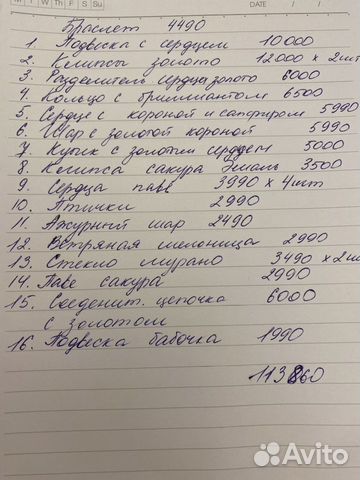 M T W Th F S Su DATE / /
Браслет 4490
1. Подвеска с сердцем 10000
2. Клипсы золото 12000 × 2шт
3. Разделитель сердца золото 6000
4. Кольцо с бриллиантом 6500
5. Сердце с короной и сапфиром 5990
6. Шар с золотой короной 5990
7. Кубик с золотым сердцем 5000
8. Клипса сакура эмаль 3500
9. Сердца паве 3990 × 4шт
10. Птички 2990
11. Ажурный шар 2490
12. Ветряная мельница 2990
13. Стекло мурано 3490 × 2шт
14. Паве сакура 2990
15. Соеденит. цепочка 6000
с золотом
16. Подвеска бабочка 1990
113860
Avito